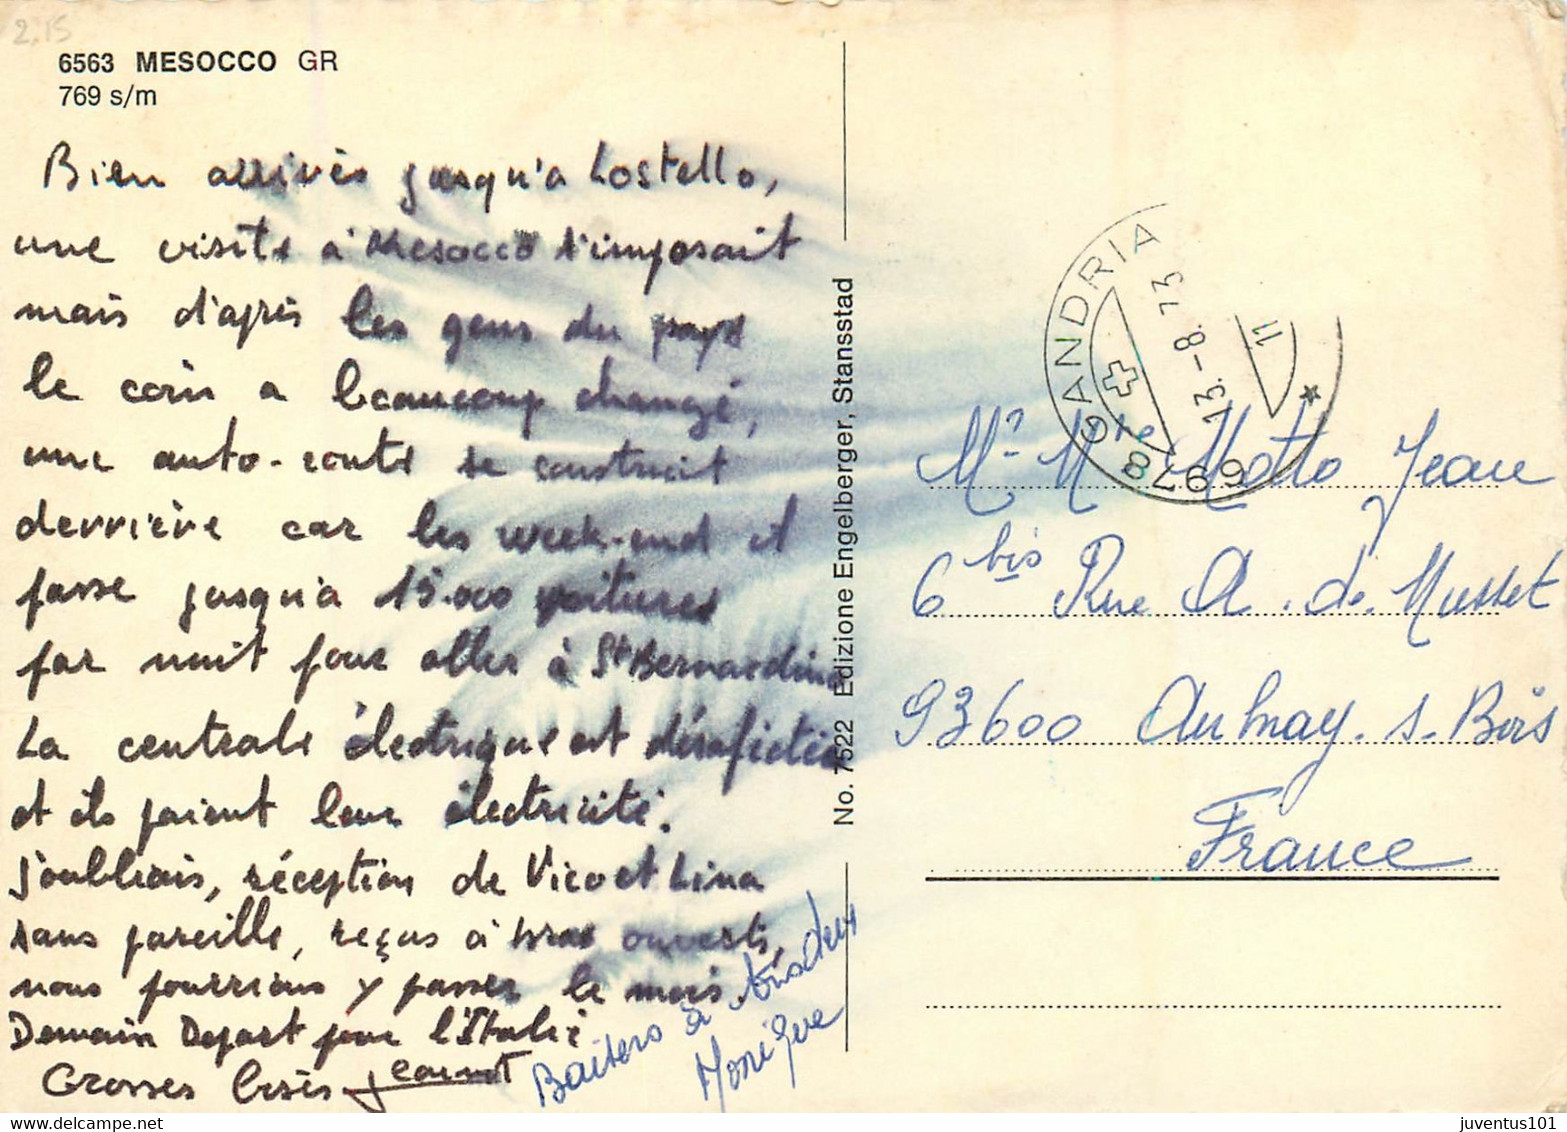 2.15
6563 MESOCCO GR
769 s/m
Bien arrivés jusqu'a Lostello,
une visite à Mesocco s'imposait
mais d'après les gens du pays
le coin a beaucoup changé,
une auto-route se construit
derrière car les week-end il
passe jusqu'a 15.000 voitures
par nuit pour aller à St Bernardino
La centrale électrique est désafectée
et ils paient leur électricité.
J'oubliais, réception de Vico et Lina
sans pareille, reçus à bras ouverts,
nous pourrions y passer le mois.
Demain Depart pour l'Italie
Grosses bises Jeannot
Baisers à tous deux
Monique
No. 7522 Edizione Engelberger, Stansstad
GANDRIA
13.-8.73
11
6978
Mr Mme Motto Jean
6 bis Rue A. de Musset
93600 Aulnay-s-Bois
France
juventus101